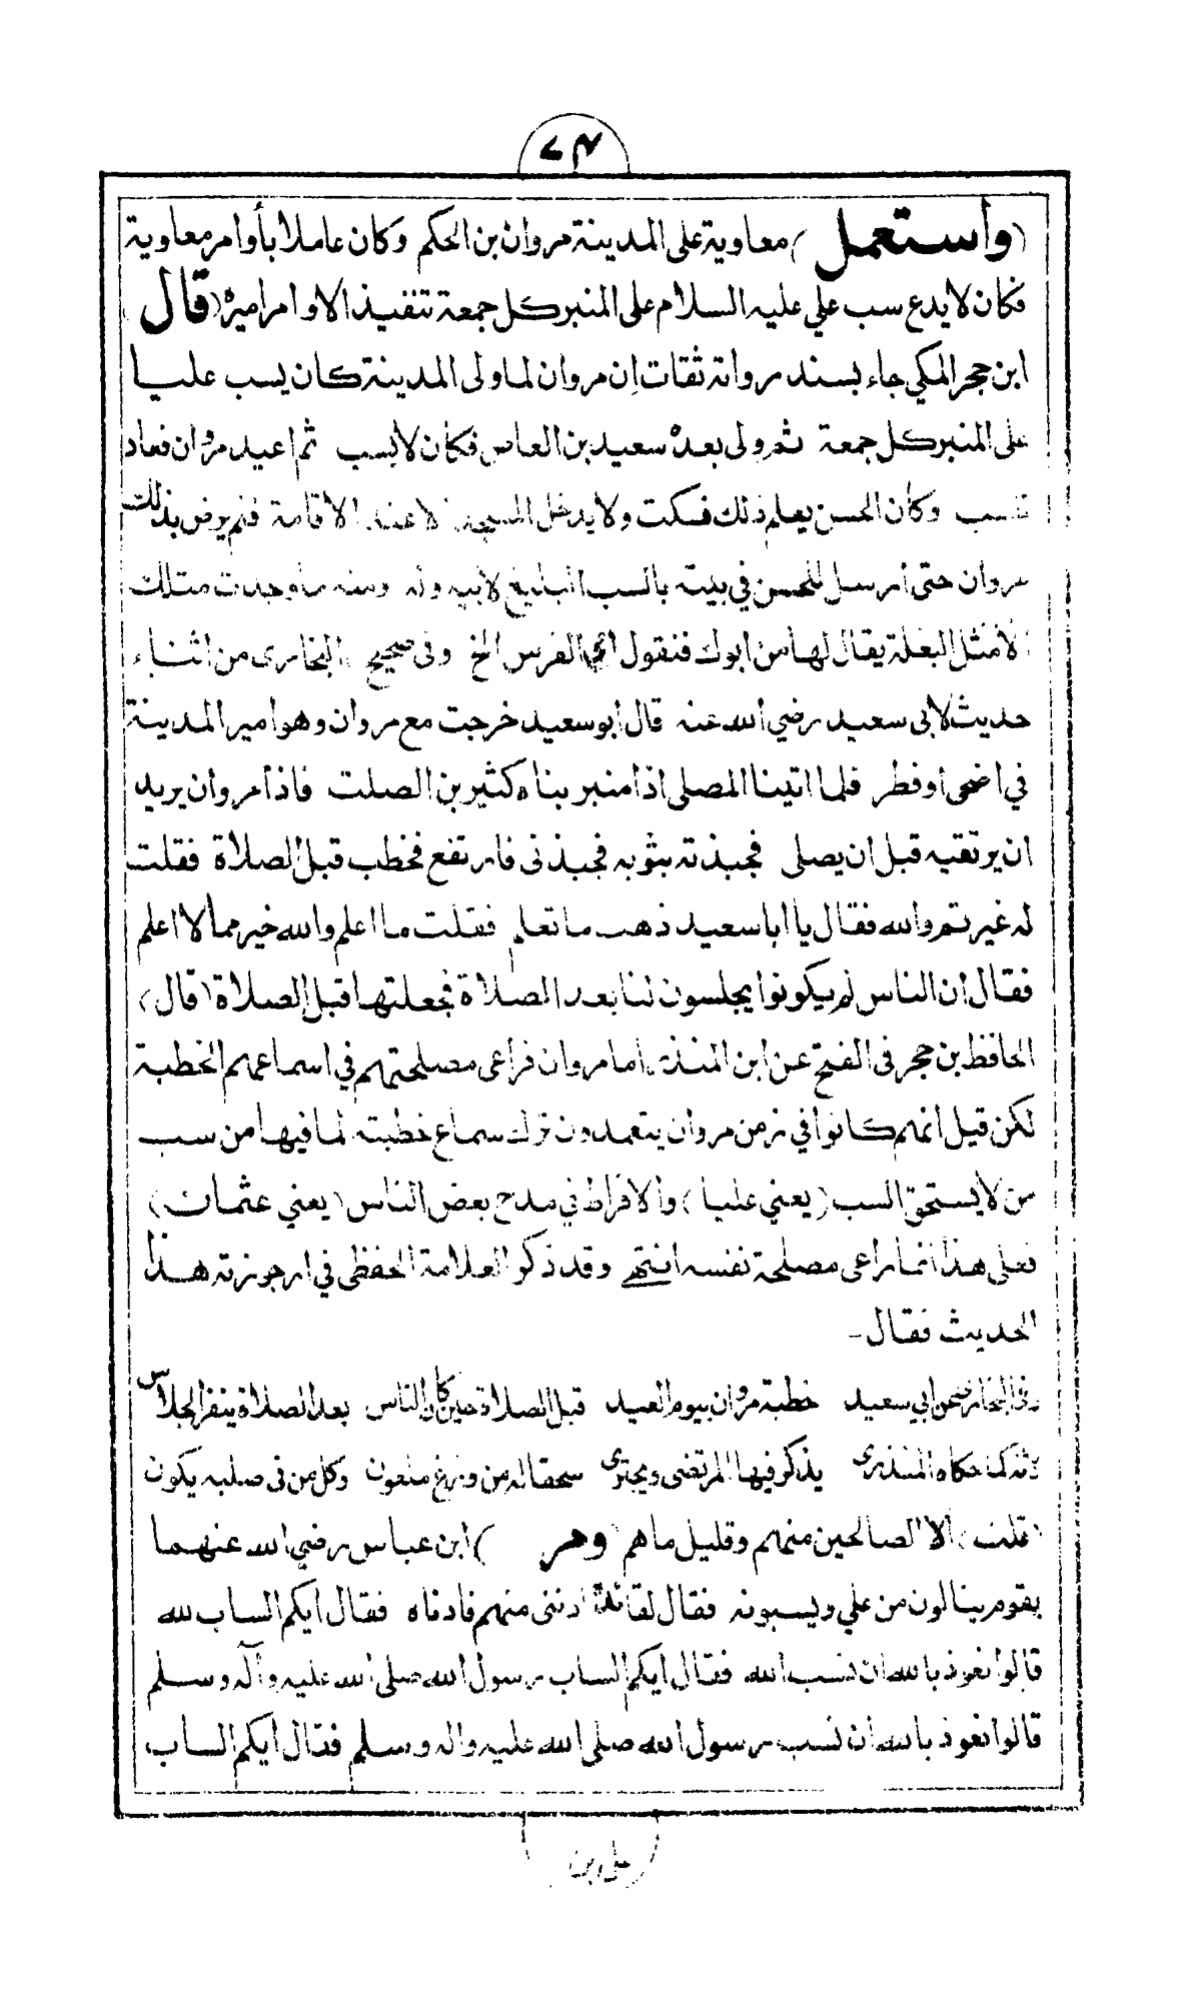 ٧٤
(واستعمل) معاوية على المدينة مروان بن الحكم وكان عاملا بأوامر معاوية
فكان لا يدع سب علي عليه السلام على المنبر كل جمعة تنفيذا لاوامر اميره (قال)
ابن حجر المكي جاء بسند رواته ثقات ان مروان لما ولى المدينة كان يسب عليا
على المنبر كل جمعة ثم ولى بعده سعيد بن العاص فكان لا يسب ثم اعيد مروان فعاد
للسب وكان الحسن يعلم ذلك فسكت ولا يدخل المسجد الا عند الاقامة فلم يرض بذلك
مروان حتى ارسل للحسن في بيته بالسب البليغ لابيه وله ومنه ما وجدت مثلك
الا مثل البغلة يقال لها من ابوك فتقول امي الفرس الخ وفى صحيح البخارى من اثناء
حديث لابى سعيد رضي الله عنه قال ابو سعيد خرجت مع مروان وهو امير المدينة
في اضحى او فطر فلما اتينا المصلى اذا منبر بناه كثير بن الصلت فاذا مروان يريد
ان يرتقيه قبل ان يصلى فجبذته بثوبه فجبذنى فارتفع فخطب قبل الصلاة فقلت
له غيرتم والله فقال يا ابا سعيد ذهب ما تعلم فقلت ما اعلم والله خير مما لا اعلم
فقال ان الناس لم يكونوا يجلسون لنا بعد الصلاة فجعلتها قبل الصلاة (قال)
الحافظ بن حجر فى الفتح عن ابن المنذر اما مروان فراعى مصلحتهم في اسماعهم الخطبة
لكن قيل انهم كانوا في زمن مروان يتعمدون ترك سماع خطبته لما فيها من سب
من لا يستحق السب (يعني عليا) والافراط في مدح بعض الناس (يعني عثمان)
فعلى هذا انما راعى مصلحة نفسه انتهى وقد ذكر العلامة الحفظي في ارجوزته هذا
الحديث فقال -
وفى البخارى عن ابي سعيد خطبة مروان بيوم العيد قبل الصلاة حين كان الناس بعد الصلاة ينفر الجلاس
كما حكاه المنذرى يذكر فيها المرتضى ويجترى سحقا له من وزغ ملعون وكل من فى صلبه يكون
(قلت) الا الصالحين منهم وقليل ما هم (ومر) ابن عباس رضي الله عنهما
بقوم ينالون من علي ويسبونه فقال لقائده ادننى منهم فادناه فقال ايكم الساب لله
قالوا نعوذ بالله ان نسب الله فقال ايكم الساب رسول الله صلى الله عليه وآله وسلم
قالوا نعوذ بالله ان نسب رسول الله صلى الله عليه واله وسلم فقال ايكم الساب
على بن